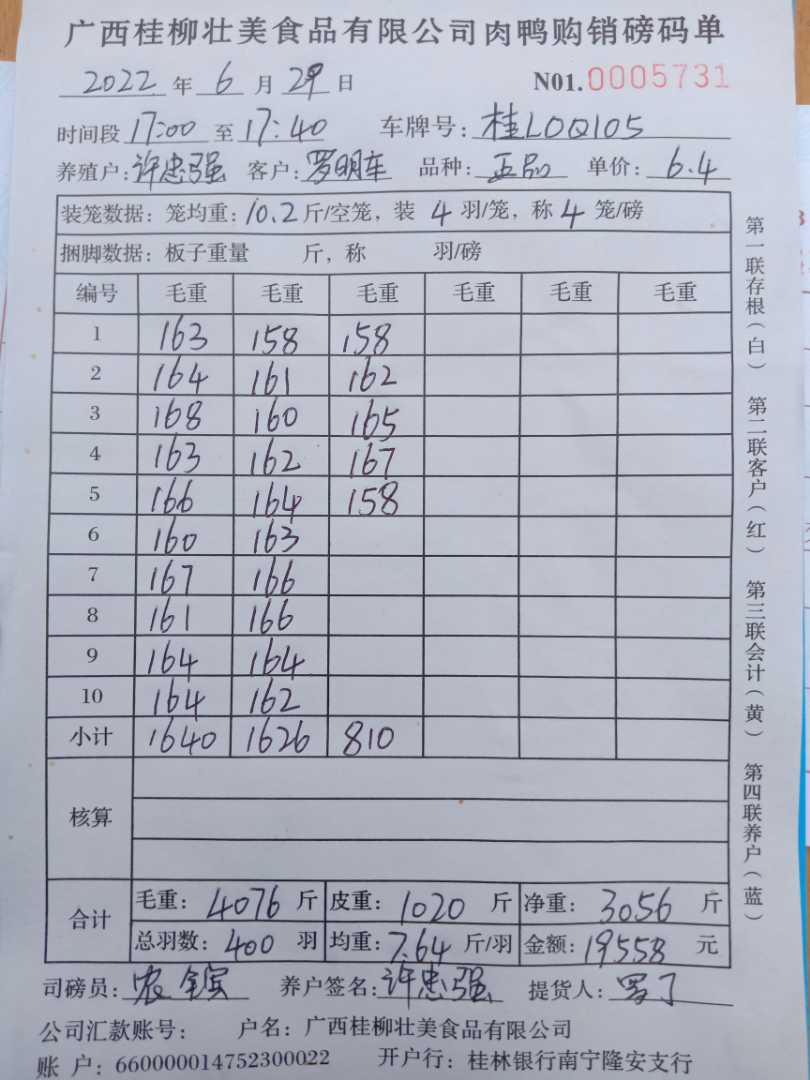 广西桂柳壮美食品有限公司肉鸭购销磅码单
2022 年 6 月 29 日 N01. 0005731
时间段 17:00 至 17:40 车牌号: 桂L0Q105
养殖户: 许忠强 客户: 罗明车 品种: 正品 单价: 6.4
装笼数据: 笼均重: 10.2 斤/空笼, 装 4 羽/笼, 称 4 笼/磅
捆脚数据: 板子重量 斤, 称 羽/磅
编号 毛重 毛重 毛重 毛重 毛重 毛重
1 163 158 158
2 164 161 162
3 168 160 165
4 163 162 167
5 166 164 158
6 160 163
7 167 166
8 161 166
9 164 164
10 164 162
小计 1640 1626 810
核算
合计
毛重: 4076 斤 皮重: 1020 斤 净重: 3056 斤
总羽数: 400 羽 均重: 7.64 斤/羽 金额: 19558 元
司磅员: 农 养户签名: 许忠强 提货人: 罗
公司汇款账号: 户名: 广西桂柳壮美食品有限公司
账 户: 660000014752300022 开户行: 桂林银行南宁隆安支行
第一联存根(白)
第二联客户(红)
第三联会计(黄)
第四联养户(蓝)